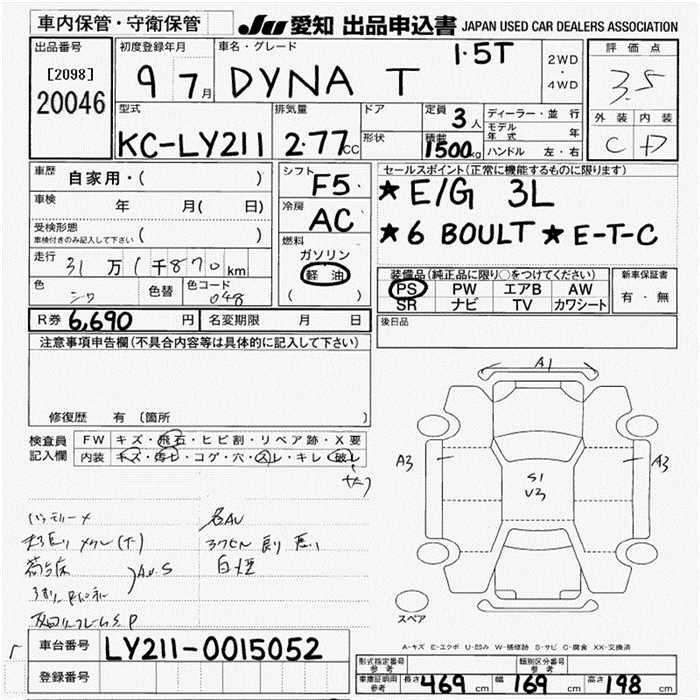 車内保管・守衛保管
JU 愛知 出品申込書 JAPAN USED CAR DEALERS ASSOCIATION
出品番号
[2098]
20046
初度登録年月
9 7月
車名・グレード
DYNA T 1.5T
2WD
・
4WD
評価点
3.5
外装 内装
C D
型式
KC-LY211
排気量
2.77cc
ドア
形状
定員 3人
積載 1500kg
ディーラー・並行
モデル年式 年
ハンドル 左・右
車歴
自家用・( )
車検
年 月( 日)
受検形態
車検付きのみ記入して下さい ( )
走行
31万1千870km
色
シロ
色替
色コード
048
シフト
F5
冷房
AC
燃料
ガソリン
軽油
( )
セールスポイント(正常に機能するものに限ります)
★ E/G 3L
★ 6 BOULT ★ E-T-C
装備品(純正品に限り○をつけてください)
PS PW エアB AW
SR ナビ TV カワシート
新車保証書
有・無
R券 6,690 円 名変期限 月 日
後日品
注意事項申告欄(不具合内容等は具体的に記入して下さい)
修復歴 有 〔箇所 〕
検査員
記入欄
FW キズ・飛石・ヒビ割・リペア跡・X要
内装 キズ・汚れ・コゲ・穴・スレ・キレ・破レ
A1
A3
S1
U3
A3
スペア
名AU
白煙
A-キズ E-エクボ U-凹み W-補修跡 S-サビ C-腐食 XX-交換済
車台番号 LY211-0015052
登録番号
形式指定番号
参考
類別区分番号
参考
車庫証明用
参考
長さ 469 cm 幅 169 cm 高さ 198 cm